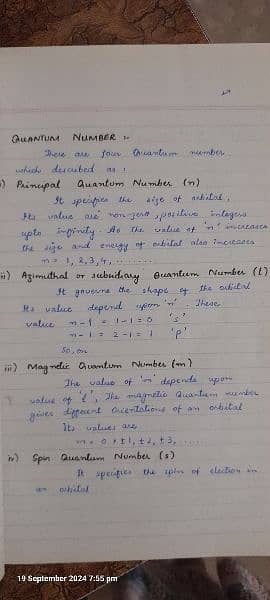 QUANTUM NUMBER :-
There are four Quantum number
which described as :
i) Principal Quantum Number (n)
It specifies the size of orbital,
Its value are non-zero, positive integers
upto infinity. As the value of 'n' increases
the size and energy of orbital also increases
n = 1, 2, 3, 4, ........
ii) Azimuthal or subsidiary Quantum Number (l)
It governs the shape of the orbital
Its value depend upon 'n'. These
value n-1 = 1-1 = 0 's'
n-1 = 2-1 = 1 'p'
So, on
iii) Magnetic Quantum Number (m)
The value of 'm' depends upon
value of 'l', The magnetic Quantum number
gives different orientations of an orbital
Its values are
m = 0, ±1, ±2, ±3, .....
iv) Spin Quantum Number (s)
It specifies the spin of electron in
an orbital
19 September 2024 7:55 pm